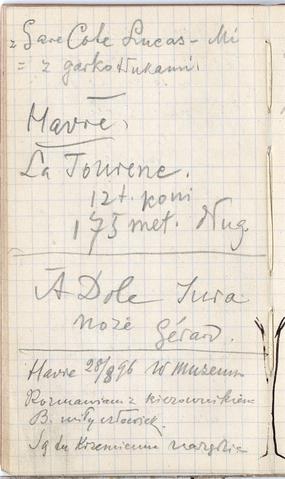 z Gare Cote Lucas - Mi
= z garkotłukami.
Havre,
La Tourene.
12 t. koni
175 met. dług.
A Dole Jura
noże Gérard.
Havre 28/8 96 w muzeum
Rozmawiam z kierownikiem
B. miły człowiek.
Są tu Krzemienne narzędzia